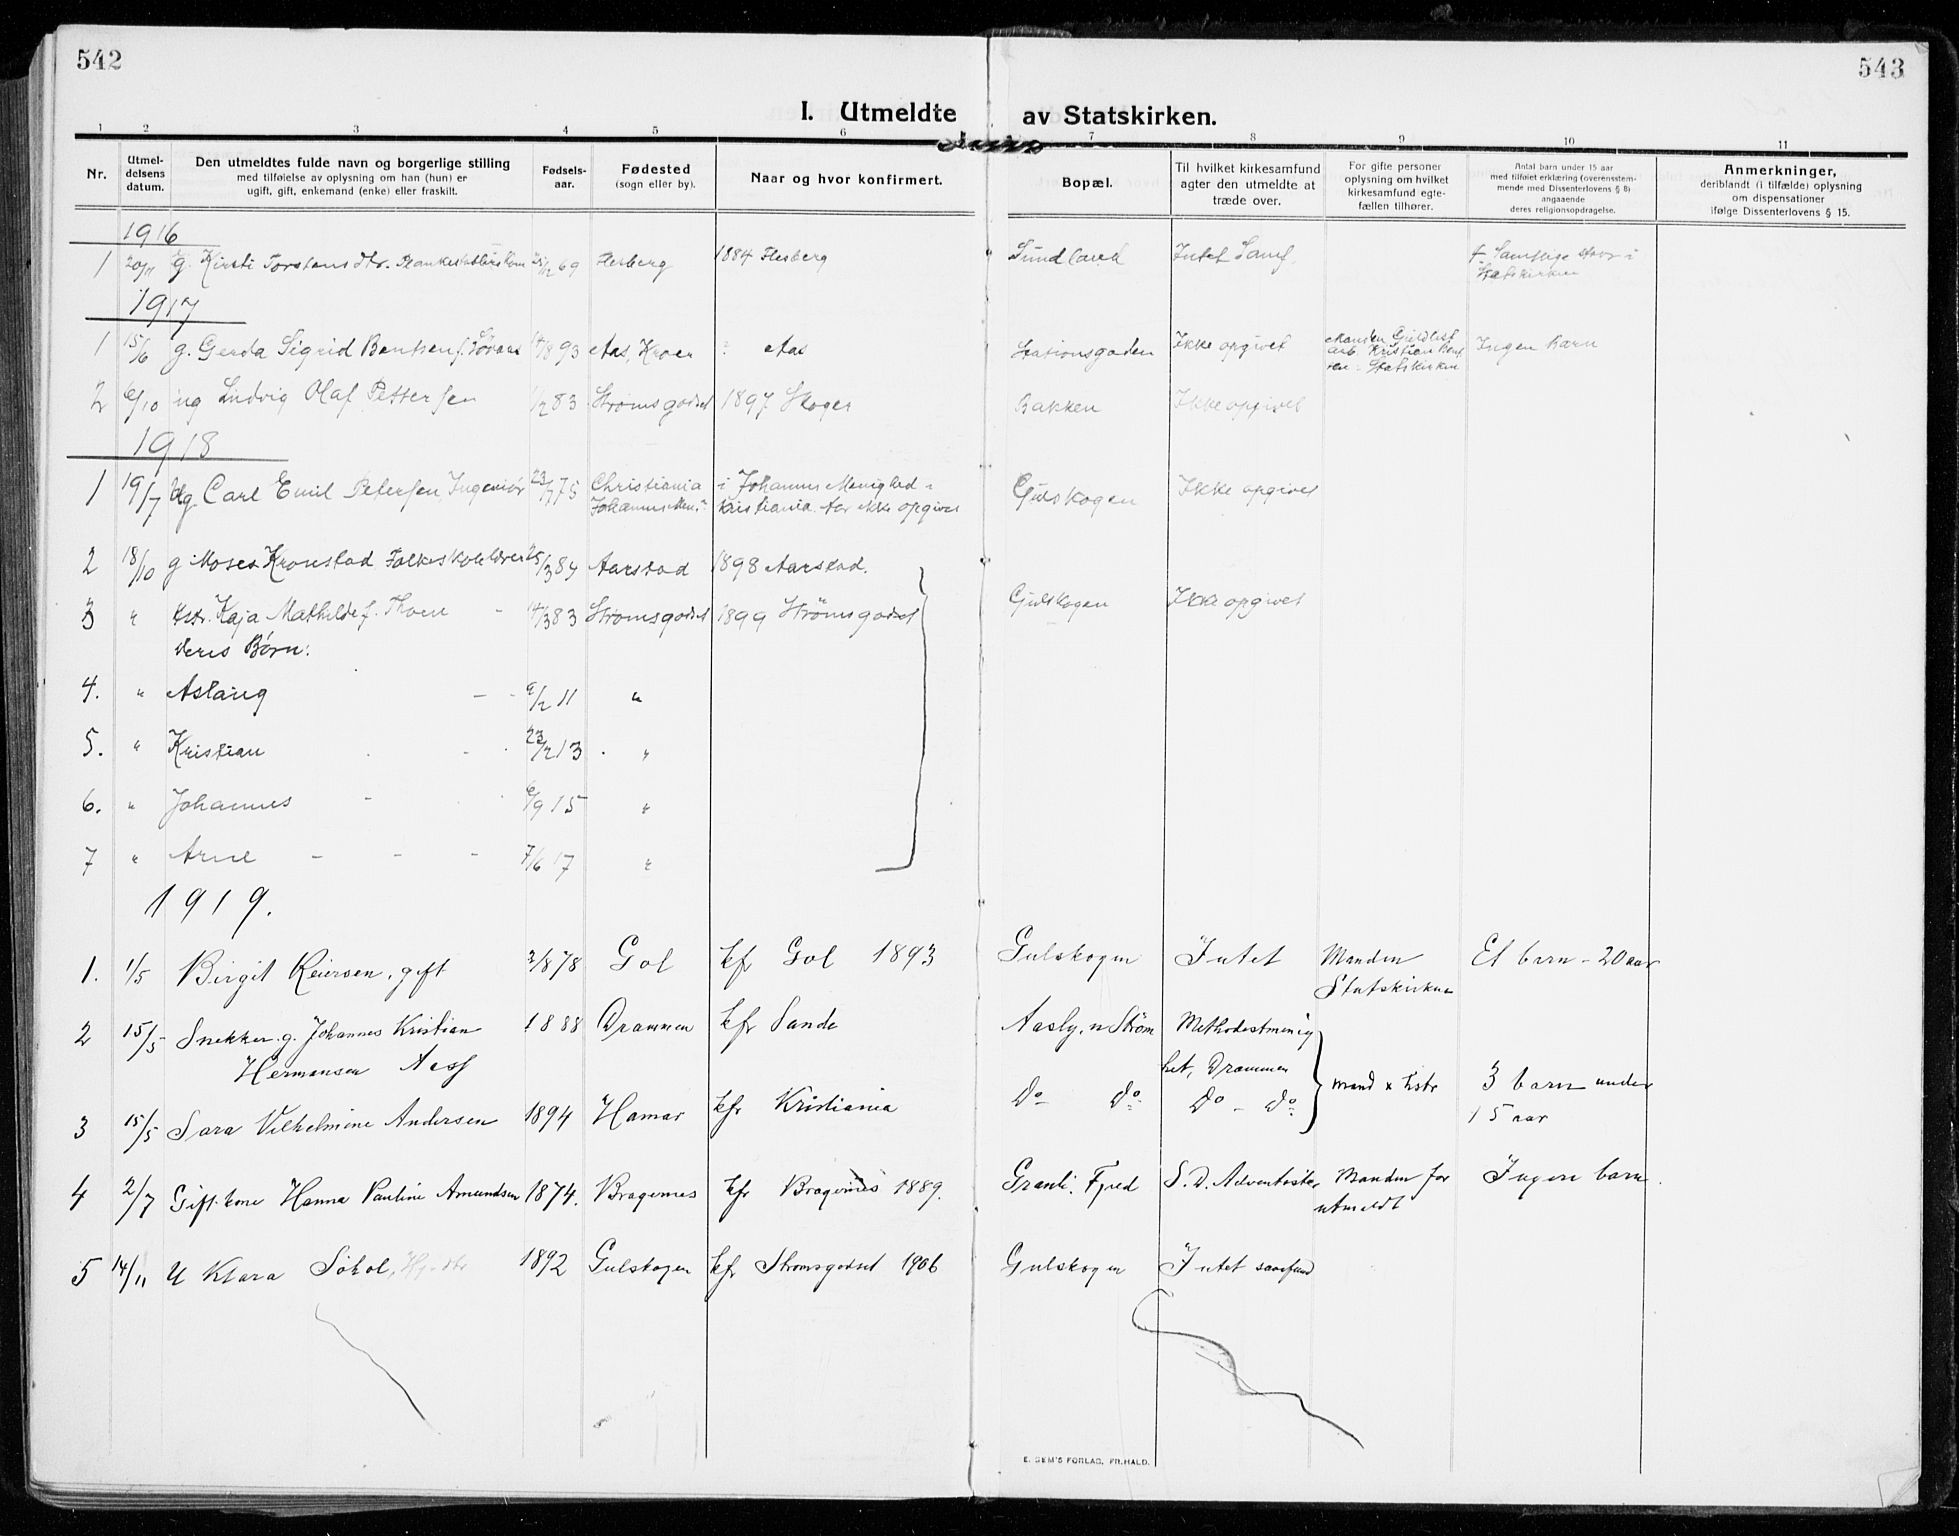 542
543
I. Utmeldte av Statskirken.
1 2 3 4 5 6 7 8 9 10 11
Nr.
Utmel-
delsens
datum.
Den utmeldtes fulde navn og borgerlige stilling
med tilføielse av oplysning om han (hun) er
ugift, gift, enkemand (enke) eller fraskilt.
Fødsels-
aar.
Fødested
(sogn eller by).
Naar og hvor konfirmert.
Bopæl.
Til hvilket kirkesamfund
agter den utmeldte at
træde over.
For gifte personer
oplysning om hvilket
kirkesamfund egte-
fællen tilhører.
Antal barn under 15 aar
med tilføiet erklæring (overensstem-
mende med Dissenterlovens § 8)
angaaende
deres religionsopdragelse.
Anmerkninger,
deriblandt (i tilfælde) oplysning
om dispensationer
ifølge Dissenterlovens § 15.
1916
1 20/11 g. Kirsti Torstensdtr. /12 69 Flesberg 1884 Flesberg Sundland Intet Samf. Samtlige i
Statskirken
1917
1 15/6 g. Gerda Sigrid Bentsen f. 14/8 93 Aas, Kroer ? Aas Stationsgaden Ikke opgivet Manden
arb. Kristian Bent
sen - Statskirken
Ingen barn
2 6/10 ug Ludvig Olaf Pettersen 1/2 83 Strømsgodset 1897 Skoger Bakken Ikke opgivet
1918
1 19/7 Carl Emil Petersen, Ingeniør 23/7 75 Christiania
Johannes Men.
i Johannes Menighed i
Kristiania. Aar ikke opgivet
Gulskogen Ikke opgivet
2 18/10 g Moses Kronstad Folkeskolelærer 25/3 84 Aarstad 1898 Aarstad.
3 " Hstr. Kaja Mathilde f. Thoen - 14/3 83 Strømsgodset 1899 Strømsgodset Gulskogen Ikke opgivet
deres Børn:
4. " Aslaug - - 9/2 11 "
5. " Kristian 23/2 13 "
6. " Johannes - 6/9 15 "
7 " Arne - - - 7/6 17 "
1919.
1. 1/5 Birgit Reiersen, gift 3/8 78 Gol kfr Gol 1893 Gulskogen Intet Manden
Statskirken
Et barn - 20 aar
2 15/5 Snekker. g. Johannes Kristian
Hermansen Aass
1888 Drammen kfr Sande Aasly, n Strøm Methodistmenig
het, Drammen
Mand x hstr 3 barn under
15 aar
3 15/5 Sara Vilhelmine Andersen 1894 Hamar kfr Kristiania Do Do Do - Do
4 2/7 Gift. kone Hanna Pauline Amundsen 1874. Bragernes kfr Bragernes 1889. Granli. Fjeld S. D. Adventister Manden for
utmeldt
Ingen barn.
5 14/11 U Klara Sokol, 1892 Gulskogen kfr Strømsgodset 1906 Gulskogen Intet samfund
E. SEM'S FORLAG, FR.HALD.